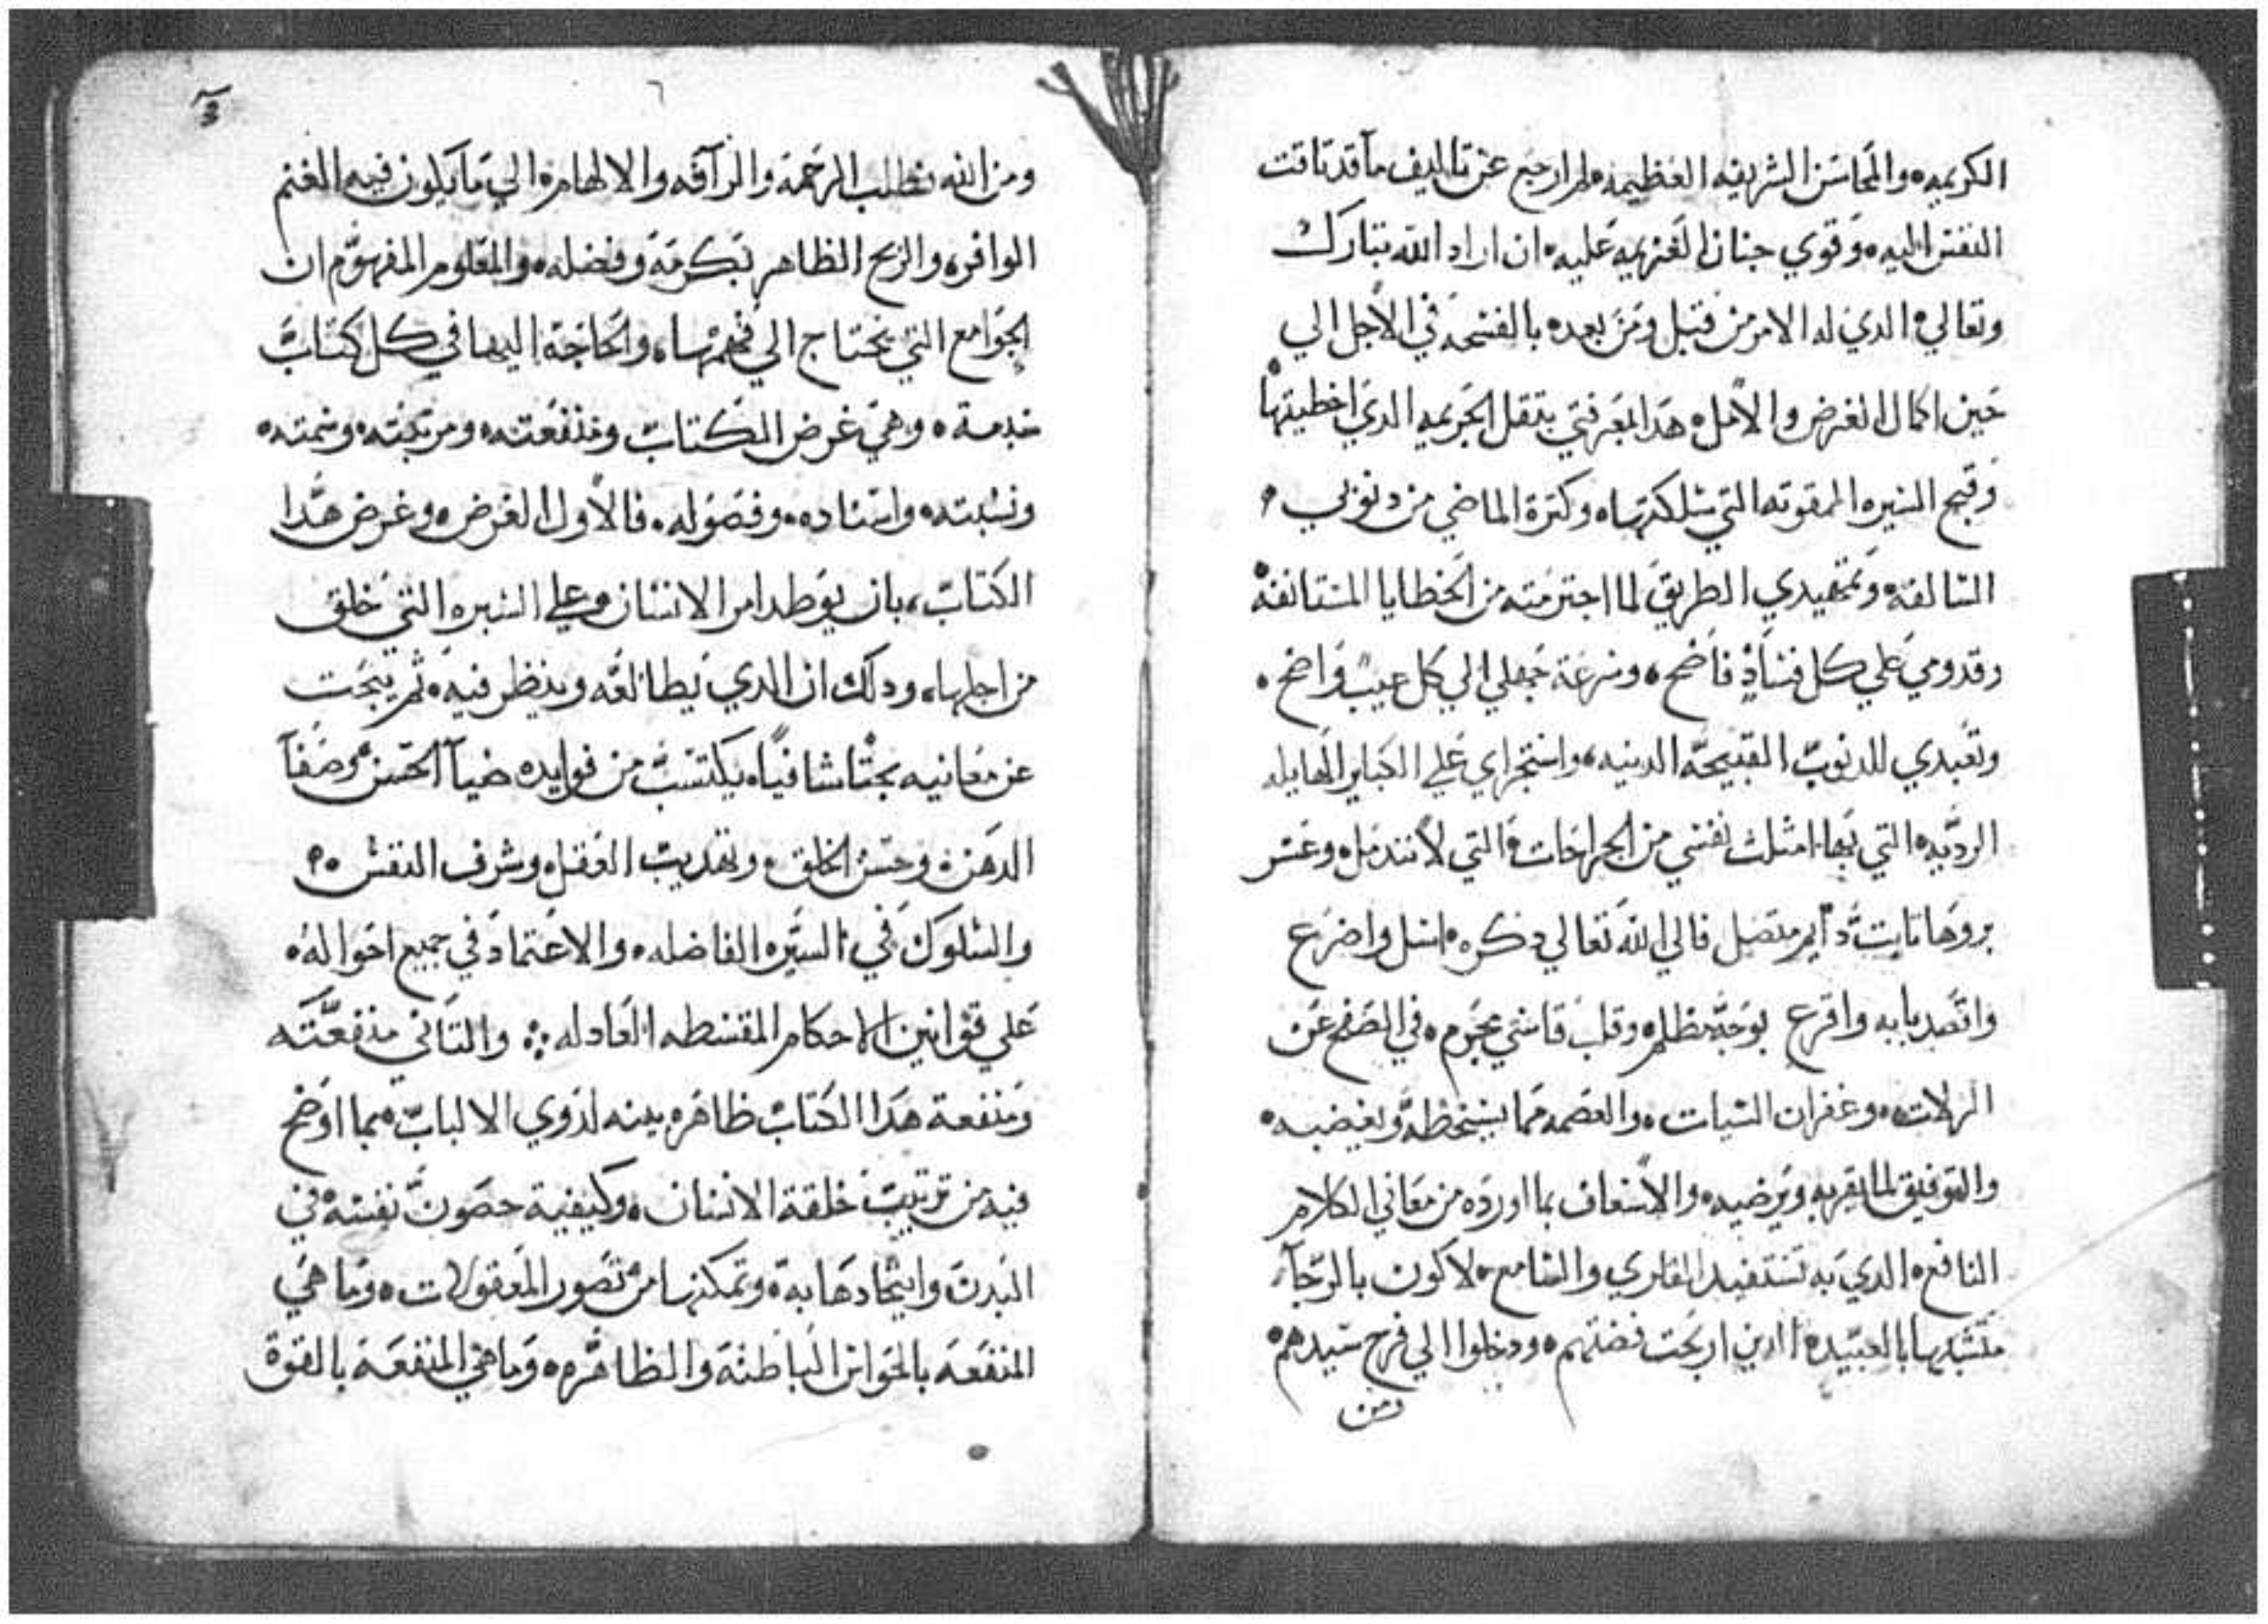 الكريمه والمحاسن الشريفه العظيمه لم ارجع عن تاليف ما قد تاقت
النفس اليه وقوي جنان العزيمه عليه ان اراد الله تبارك
وتعالي الدي له الامر من قبل ومن بعد بالفسحه في الاجل الي
حين اكمال الغرض والامل هدا لمعرفتي بتقل الجريمه الدي اخطيتها
وقبح السيره الممقوته التي سلكتها وكترة الماضي من دنوبي
السالفه وتمهيدي الطريق لما اجترمته من الخطايا المستانفه
وقدومي علي كل فساد فاضح وسرعة جهلي الي كل عيب واضح
وتعبدي للدنوب القبيحه الدينه واستجراي علي الكباير الهايله
الرديه التي بها امثلت نفسي من الجراحات التي لا تندمل وعسر
بروها تابت دايم متصل فالي الله تعالي دكره اسل واضرع
واقصد بابه واقرع بوجه مظلم وقلب قاسي مجرم في الصفح عن
الزلات وغفران السيات والعصمه مما يسخطه ويغضبه
والتوفيق لما يقربه ويرضيه والاسعاف بما اورده من معاني الكلام
النافع الدي به تستفيد القاري والسامع لاكون بالرجآ
متشبها بالعبيد الدين اربحت فضتهم ودخلوا الي فرح سيدهم
ومن
٦
ومن الله نطلب الرحمة والرآفه والالهام الي ما يكون فيه الغنم
الوافر والربح الظاهر بكرمه وفضله والمعلوم المفهوم ان
الجوامع التي نحتاج الي فهمها والحاجة اليها في كل كتاب
وهي غرض الكتاب ومنفعته ومرتبته وسمته
ونسبته واسناده وفصوله فالاول الغرض وغرض هدا
الكتاب بان يوطد امر الانسان علي السيره التي خلق
من اجلها ودلك ان الدي يطالعه وينظر فيه تم يبحت
عن معانيه بحتا شافيا يكتسب من فوايده ضيآ الحس وصفآ
الدهن وحسن الخلق وتهديب العقل وشرف النفس
والسلوك في السيره الفاضله والاعتماد في جميع احواله
علي قوانين الاحكام المقسطه العادله والتاني منفعته
ومنفعة هدا الكتاب ظاهره بينه لدوي الالباب بما اوضح
فيه من ترتيب خلقة الانسان وكيفية حصون نفسه في
البدن واتحادها به وتمكنها من تصور المعقولات وما هي
المنفعه بالحواس الباطنه والظاهره وما هي المنفعة بالقوة